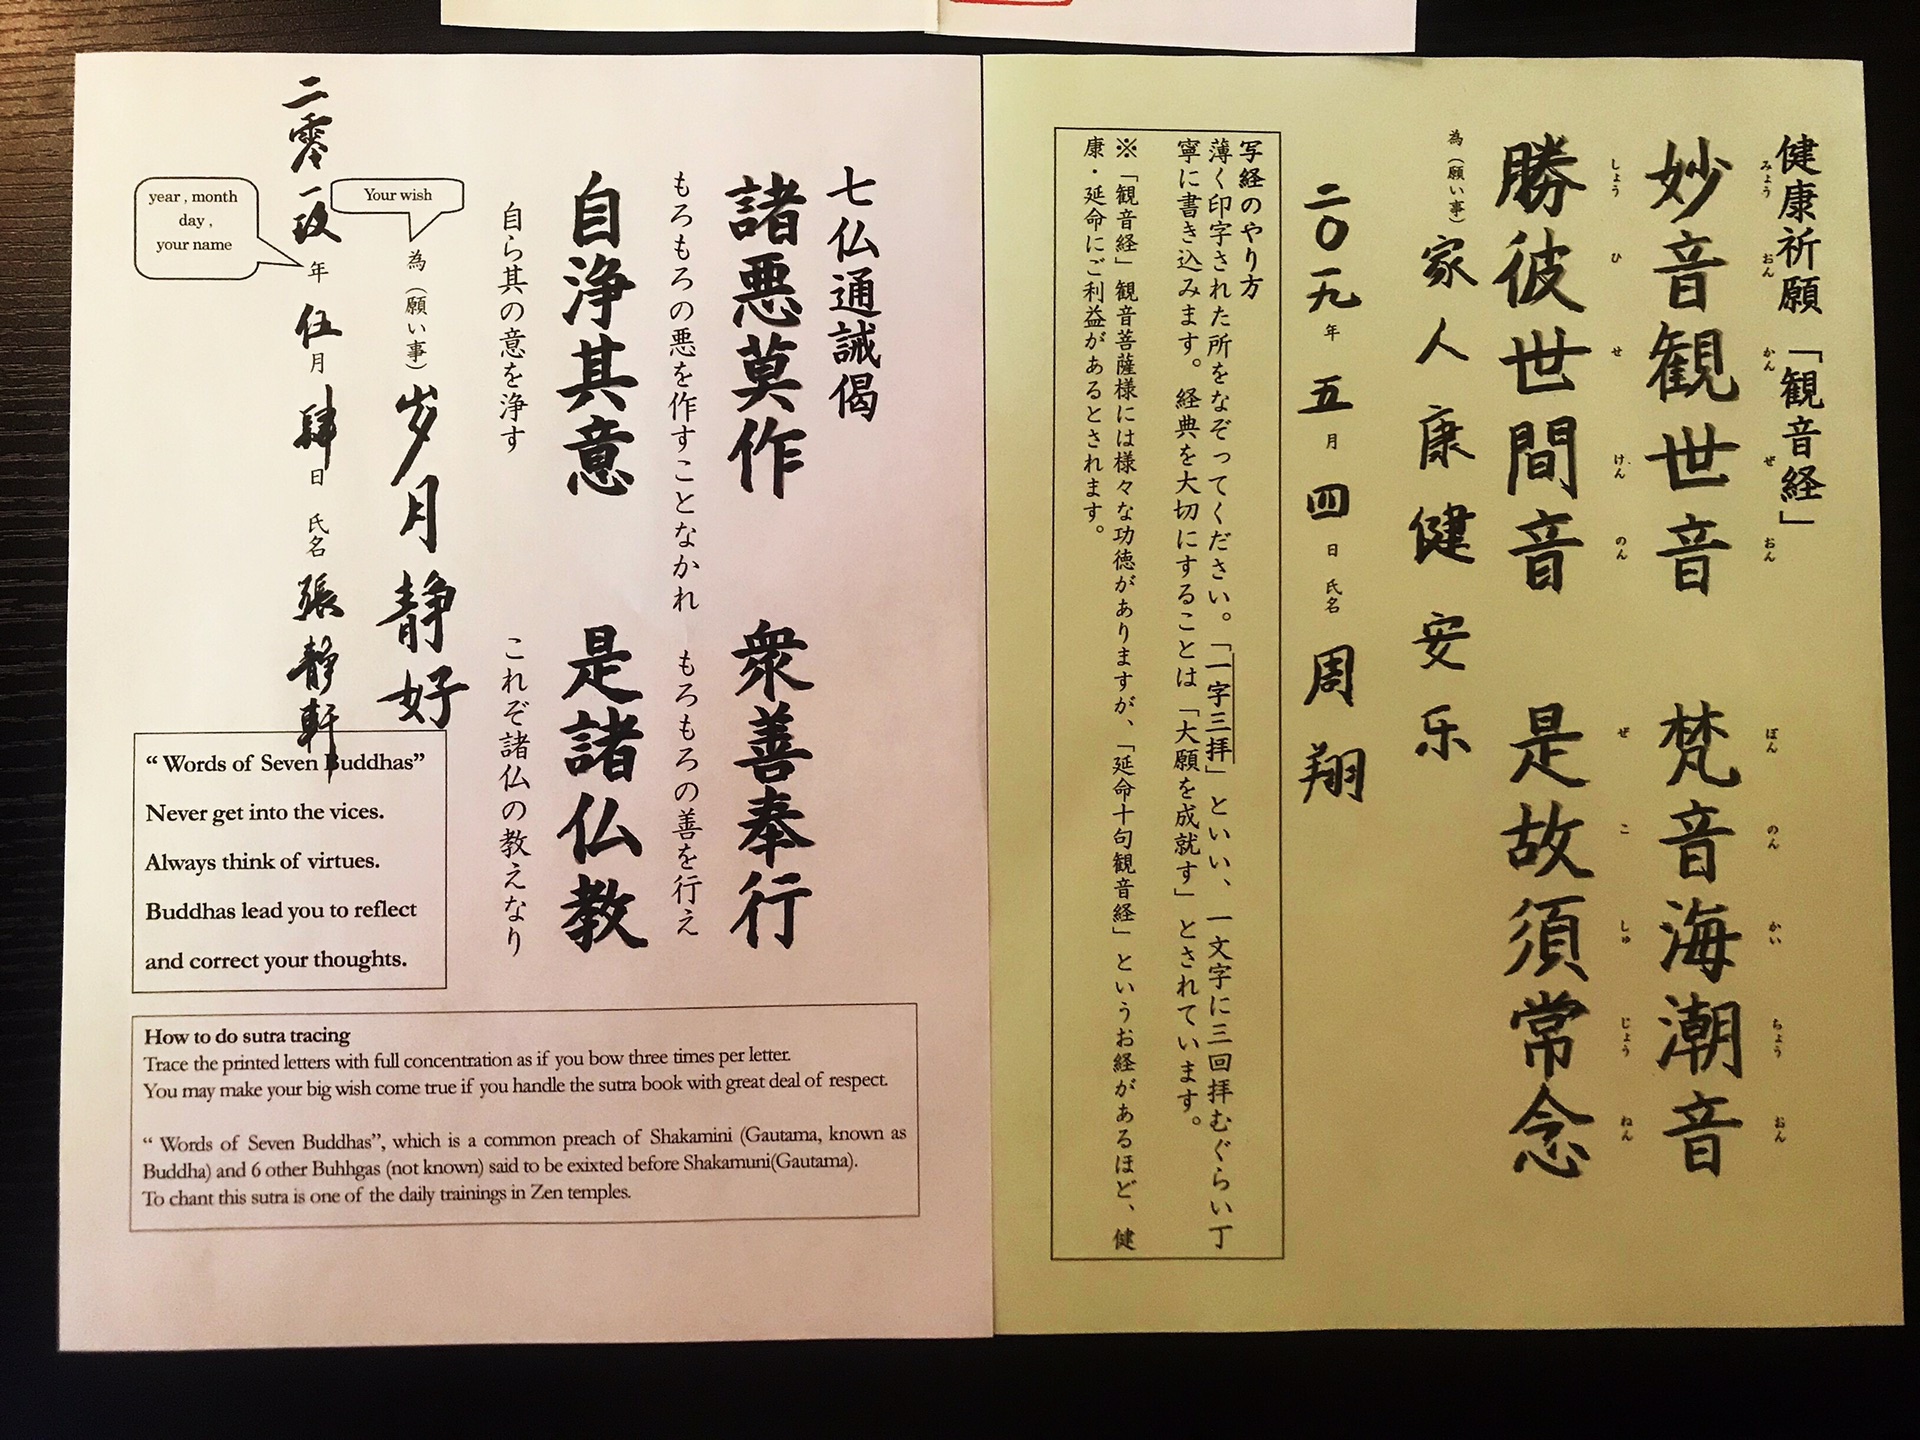 健康祈願「観音経」
みょう おん かん ぜ おん ぼん のん かい ちょう おん
妙音観世音 梵音海潮音
しょう ひ せ けん のん ぜ こ しゅ じょう ねん
勝彼世間音 是故須常念
為(願い事) 家人康健安乐
二〇一九年 五月 四日 氏名 周翔
写経のやり方
薄く印字された所をなぞってください。「一字三拝」といい、一文字に三回拝むぐらい丁
寧に書き込みます。経典を大切にすることは「大願を成就す」とされています。
※「観音経」観音菩薩様には様々な功徳がありますが、「延命十句観音経」というお経があるほど、健
康・延命にご利益があるとされます。
七仏通誡偈
諸悪莫作 衆善奉行
もろもろの悪を作すことなかれ もろもろの善を行え
自浄其意 是諸仏教
自ら其の意を浄す これぞ諸仏の教えなり
Your wish
為(願い事) 岁月静好
year , month
day ,
your name
二零一玖年 伍月 肆日 氏名 張靜軒
“ Words of Seven Buddhas”
Never get into the vices.
Always think of virtues.
Buddhas lead you to reflect
and correct your thoughts.
How to do sutra tracing
Trace the printed letters with full concentration as if you bow three times per letter.
You may make your big wish come true if you handle the sutra book with great deal of respect.
“ Words of Seven Buddhas”, which is a common preach of Shakamini (Gautama, known as
Buddha) and 6 other Buhhgas (not known) said to be exixted before Shakamuni(Gautama).
To chant this sutra is one of the daily trainings in Zen temples.